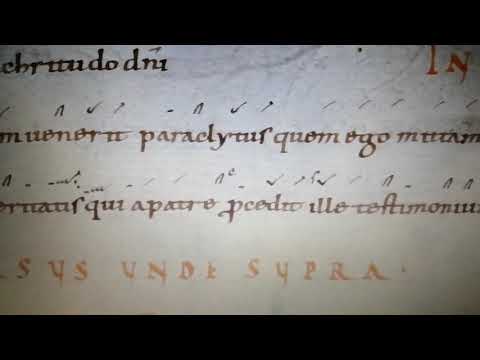 ebritudo dñi IN
m uenerit paraclytus quem ego mittam
eritatis qui a patre p̄cedit ille testimoniu
SUS UNDE SUPRA.